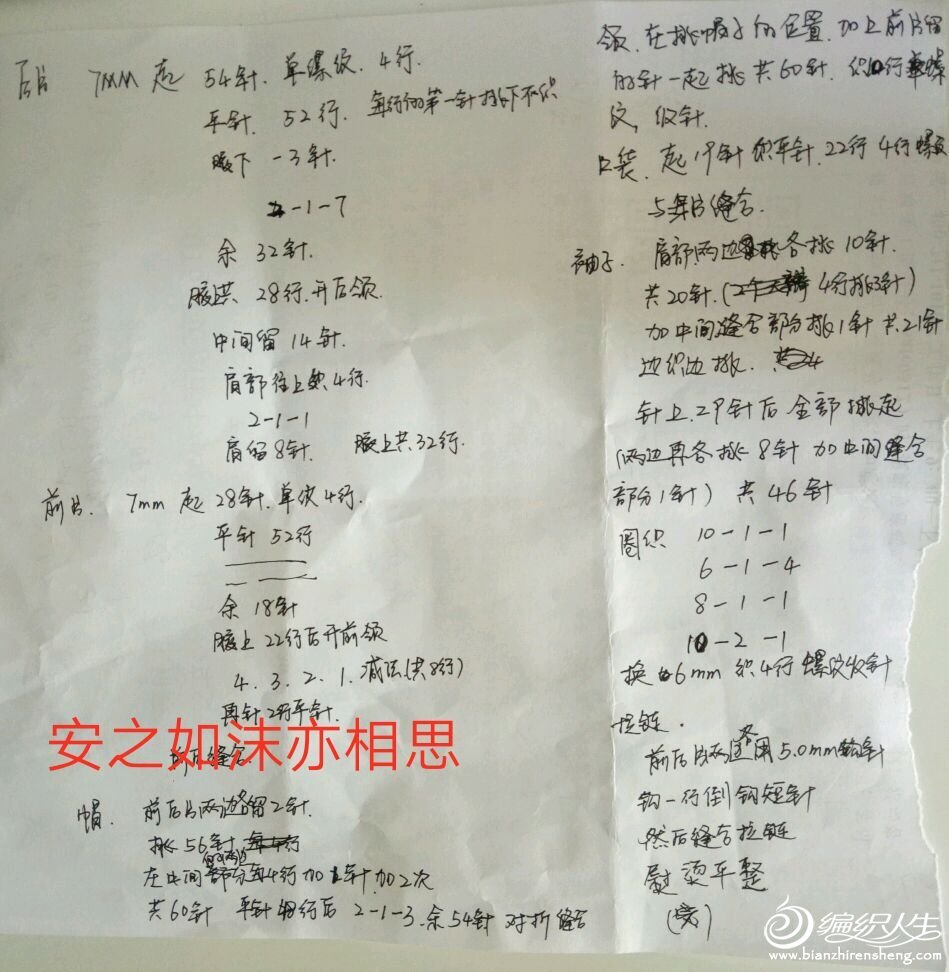 后片 7mm 起 54针. 单螺纹. 4行.
平针. 52行. 每行的第一针挑下不织
腋下 -3针.
2-1-7
余 32针.
腋上共 28行.开后领.
中间留 14针.
肩部往上织4行.
2-1-1
肩留8针. 腋上共32行.
前片. 7mm 起 28针.单纹4行.
平针 52行
余 18针
腋上 22行后开前领
4. 3. 2. 1. 减法(共8行)
再针2行平针.
前后缝合.
安之如沫亦相思
帽. 前后片两边各留2针.
挑56针
在中间部分每4行加1针加2次
共60针 平针 行后 2-1-3.余54针 对折缝合
领. 在挑帽子的位置. 加上前片留
的针一起挑 共60针. 织10行单螺
纹. 收针.
口袋. 起19针织平针.22行 4行螺纹
与前片缝合.
袖子. 肩部两边各挑10针.
共20针.(4行挑3针)
加中间缝合部分挑1针 共21针
边织边挑.
针上29针后 全部挑起
(两边再各挑8针 加中间缝合
部分1针) 共46针
圈织 10-1-1
6-1-4
8-1-1
10-2-1
换6mm 织4行螺纹收针
拉链.
前后片两边各用5.0mm钩针
钩一行倒钩短针
然后缝合拉链
熨烫平整
(完)
编织人生
www.bianzhirensheng.com